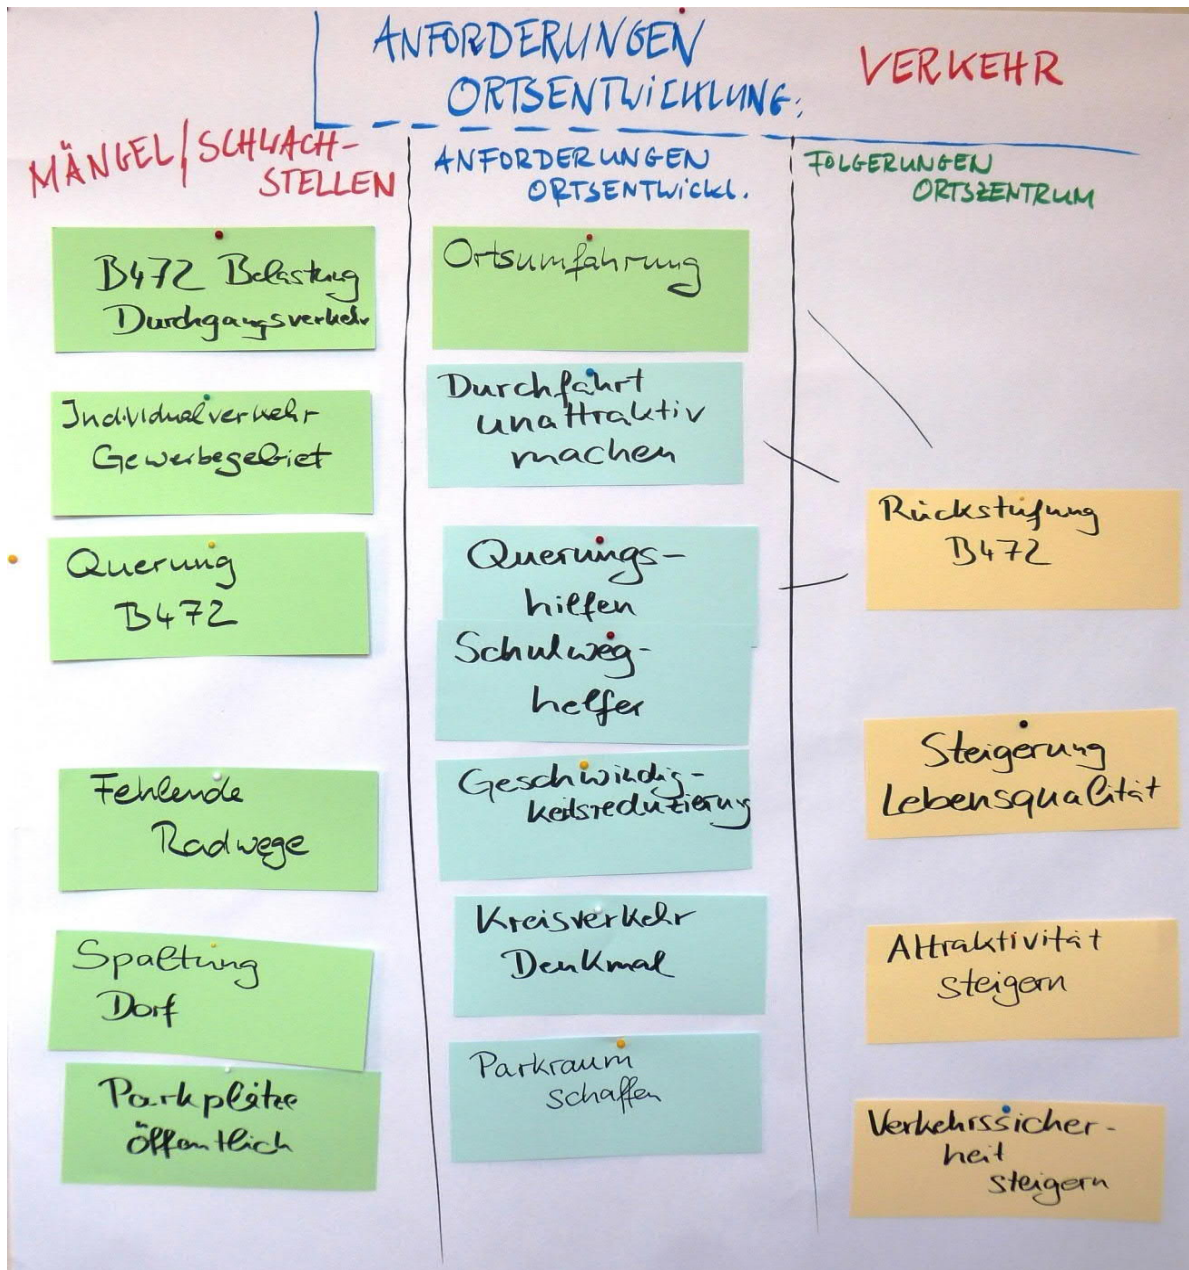 ANFORDERUNGEN
ORTSENTWICKLUNG:
VERKEHR
MÄNGEL/SCHWACH-
STELLEN
B472 Belastung
Durchgangsverkehr
Individualverkehr
Gewerbegebiet
Querung
B472
Fehlende
Radwege
Spaltung
Dorf
Parkplätze
öffentlich
ANFORDERUNGEN
ORTSENTWICKL.
Ortsumfahrung
Durchfahrt
unattraktiv
machen
Querungs-
hilfen
Schulweg-
helfer
Geschwindig-
keitsreduzierung
Kreisverkehr
Denkmal
Parkraum
schaffen
FOLGERUNGEN
ORTSZENTRUM
Rückstufung
B472
Steigerung
Lebensqualität
Attraktivität
steigern
Verkehrssicher-
heit
steigern